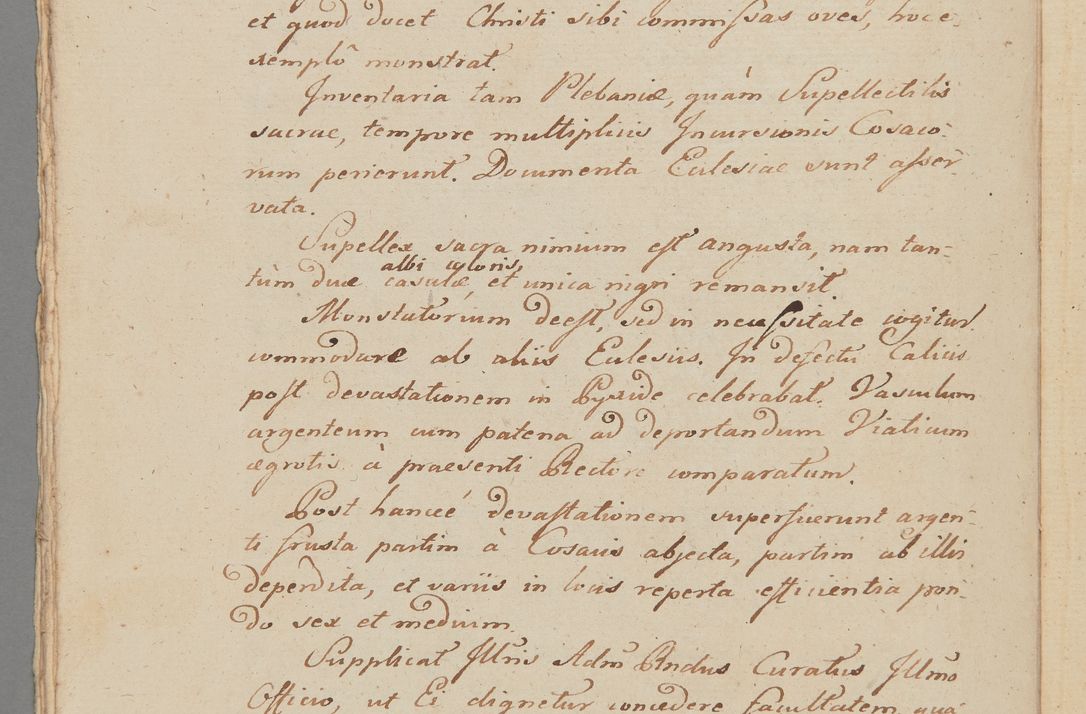 et quod docet Christi sibi commissas oves, hoc e-
xemplô monstrat.
Inventaria tam Plebaniæ, quàm Supellectilis
sacrae, tempore multiplicis Incursionis Cosaco-
rum perierunt. Documenta Eclesiae sunt asser-
vata.
Supellex sacra nimium est angusta, nam tan-
albi coloris,
tùm duæ casulæ, et unica nigri remansit
Monstatorium deest, sed in necessitate cogitur
commodare ab aliis Eclesiis. In defectu Calicis
post devastationem in Pyxide celebrabat. Vasculum
argenteum cum patena ad deportandum Viaticum
ægrotis à praesenti Rectore comparatum.
Post hancce devastationem superfuerunt argen-
ti frusta partim à Cosacis abjecta, partim ab illis
deperdita, et variis in locis reperta efficientia pon-
do sex et medium
Supplicat Illris Adm Rndus Curatus Illmo
Officio, ut Ei dignetur concedere facultatem